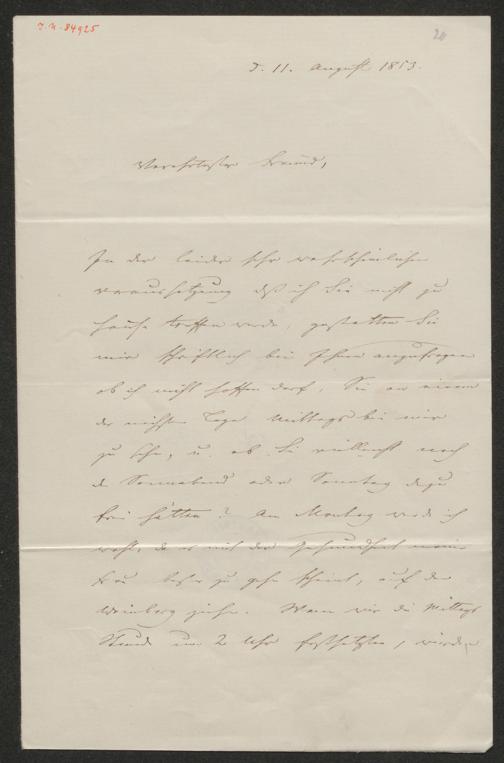 J.N. 84925
20
d. 11. August 1853.
Verehrtester Freund,
In der leider sehr wahrscheinlichen
Voraussetzung daß ich Sie nicht zu
Hause treffen werde, gestatten Sie
mir schriftlich bei Ihnen anzufragen
ob ich nicht hoffen darf, Sie an einem
der nächsten Tage Mittags bei mir
zu sehn, u. ob Sie vielleicht noch
den Sonnabend oder Sonntag dazu
frei hätten? Am Montag werde ich
wohl, da es mit der Gesundheit meiner
Frau besser zu gehn scheint, auf den
Weinberg ziehn. Wenn wir die Mittags
Stunde um 2 Uhr festsetzten, würden